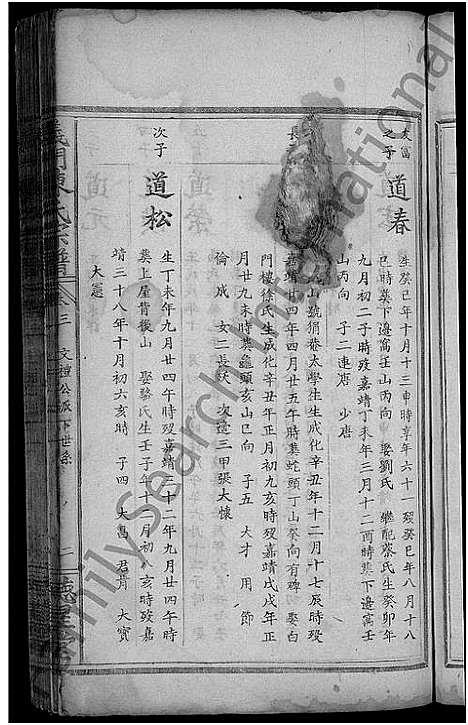 友富
之子
道春
生癸巳年十月十三申時享年六十一歿癸巳年八月十八
巳時葬下邊窩壬山丙向 娶劉氏 繼配蔡氏生癸卯年
九月初二子時歿嘉靖丁未年三月十二酉時葬下邊窩壬
山丙向 子二 連唐 少唐
長
山號狷菴太學生生成化辛丑年十二月十七辰時歿
嘉靖廿四年四月廿五午時葬蛇頭丁山癸向有碑 娶白
門樓徐氏生成化辛丑年正月初九亥時歿嘉靖戊戌年正
月廿九未時葬龜頭亥山巳向 子五 大才 用 節
倫 成 女二 長 次適三甲張大懷
次子
道松
生丁未年九月廿四午時歿嘉靖三十二年九月廿四午時
葬上屋背後山 娶蔡氏生壬子十一月初八亥時歿嘉
靖三十八年十月初六亥時 子四 大富 君 大寶
大憲
義門陳氏宗譜
卷三 文 公派下世系
德星堂
FamilySearch International